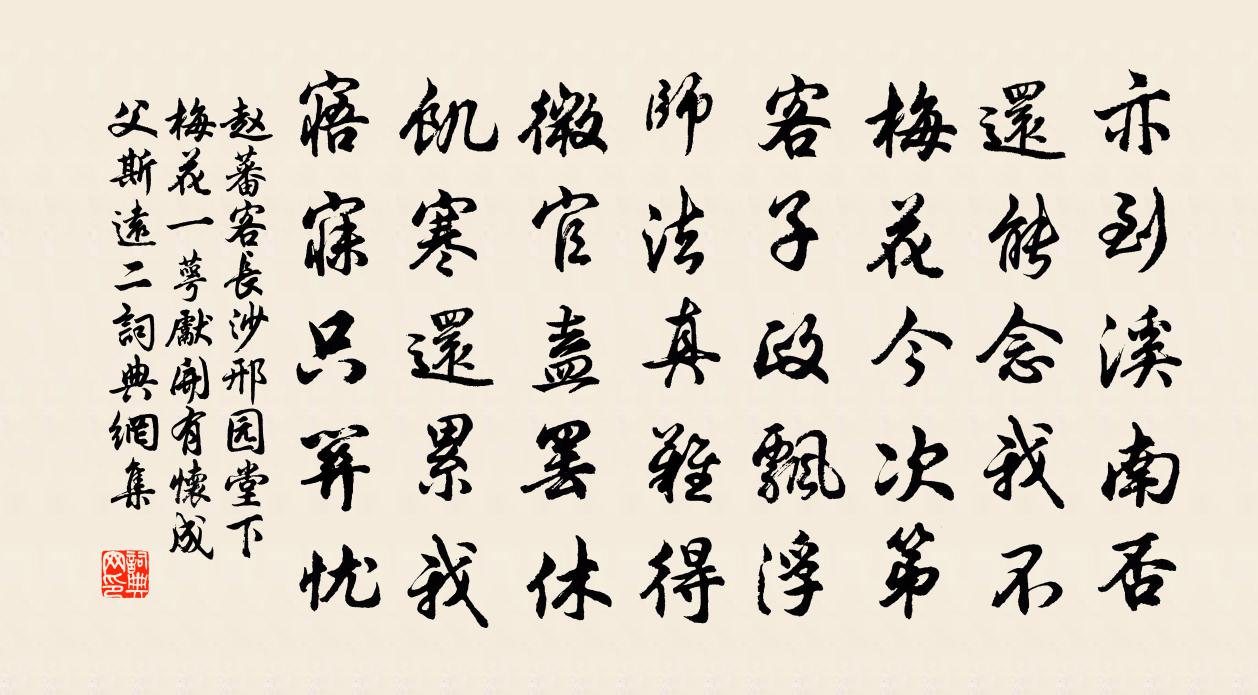 亦到溪南否
還能念我不
梅花今次第
客子政飄浮
師法真難得
微官盍罷休
飢寒還累我
寤寐只算忧
赵蕃客長沙邢园堂下
梅花一萼獻開有懷成
父斯遠二詞典網集
詞典網印